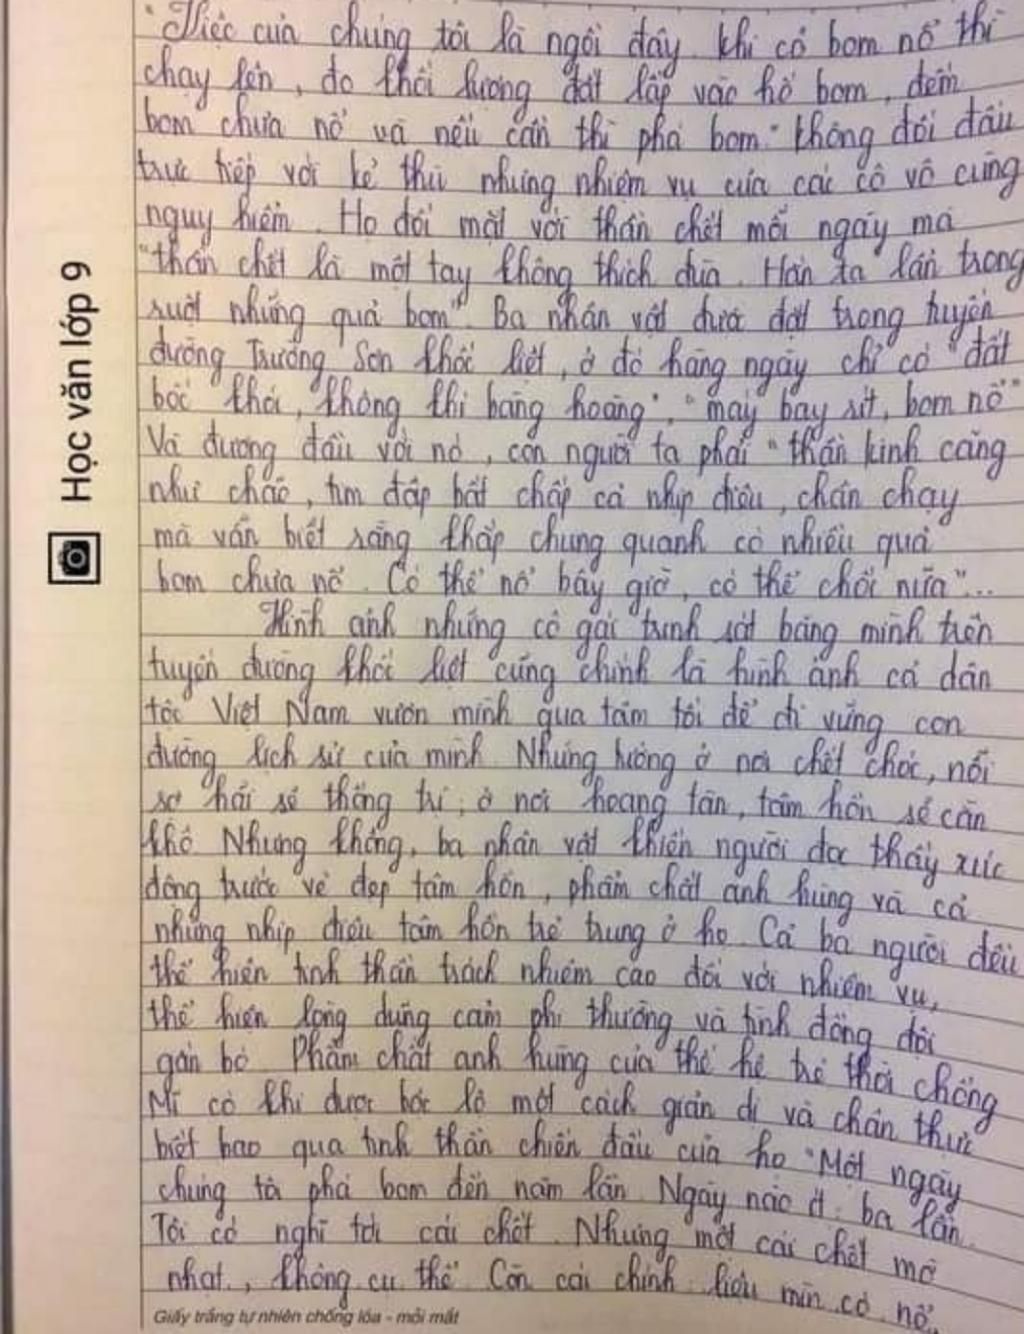 "Việc của chúng tôi là ngồi đây. Khi có bom nổ thì
chạy lên, đo khối lượng đất lấp vào hố bom, đếm
bom chưa nổ và nếu cần thì phá bom" không đối đầu
trực tiếp với kẻ thù nhưng nhiệm vụ của các cô vô cùng
nguy hiểm. Họ đối mặt với thần chết mỗi ngày mà
"thần chết là một tay không thích đùa. Hắn ta lẩn trong
ruột những quả bom". Ba nhân vật được đặt trong tuyến
đường Trường Sơn khốc liệt, ở đó hàng ngày chỉ có "đất
bốc khói, không khí bàng hoàng", "máy bay rít, bom nổ"
Và đương đầu với nó, con người ta phải "thần kinh căng
như chão, tim đập bất chấp cả nhịp điệu, chân chạy
mà vẫn biết rằng khắp chung quanh có nhiều quả
bom chưa nổ. Có thể nổ bây giờ, có thể chốc nữa"...
Hình ảnh những cô gái trinh sát băng mình trên
tuyến đường khốc liệt cũng chính là hình ảnh cả dân
tộc Việt Nam vươn mình qua tăm tối để đi vững con
đường lịch sử của mình. Những tưởng ở nơi chết chóc, nỗi
sợ hãi sẽ thống trị; ở nơi hoang tàn, tâm hồn sẽ cằn
khô. Nhưng không, ba nhân vật khiến người đọc thấy xúc
động trước vẻ đẹp tâm hồn, phẩm chất anh hùng và cả
những nhịp điệu tâm hồn trẻ trung ở họ. Cả ba người đều
thể hiện tinh thần trách nhiệm cao đối với nhiệm vụ,
thể hiện lòng dũng cảm phi thường và tình đồng đội
gắn bó. Phẩm chất anh hùng của thế hệ trẻ thời chống
Mĩ có khi được bộc lộ một cách giản dị và chân thực
biết bao qua tinh thần chiến đấu của họ "Một ngày
chúng tôi phá bom đến năm lần. Ngày nào ít: ba lần.
Tôi có nghĩ tới cái chết. Nhưng một cái chết mờ
nhạt, không cụ thể. Còn cái chính: liệu mìn có nổ,
Giấy trắng tự nhiên chống lóa - mỏi mắt
Học văn lớp 9